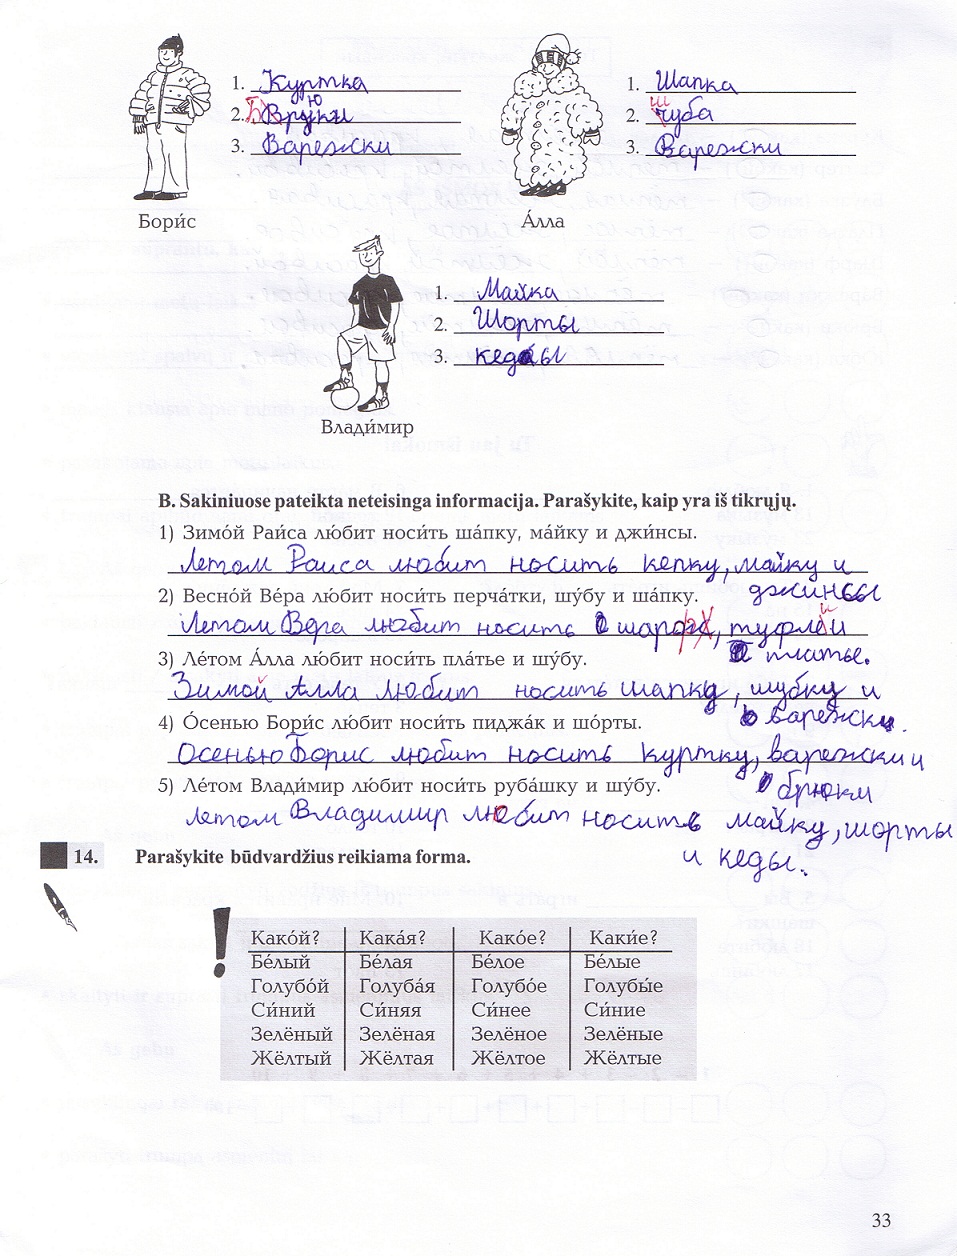 1. Куртка
2. Брюки
3. Варежки
Бори́с
1. Шапка
2. шуба
3. Варежки
А́лла
1. Майка
2. Шорты
3. кеды
Влади́мир
B. Sakiniuose pateikta neteisinga informacija. Parašykite, kaip yra iš tikrųjų.
1) Зимо́й Раи́са лю́бит носи́ть ша́пку, ма́йку и джи́нсы.
Летом Раиса любит носить кепку, майку и
джинсы
2) Весно́й Ве́ра лю́бит носи́ть перча́тки, шу́бу и ша́пку.
Летом Вера любит носить шарф, туфли и
платье.
3) Ле́том А́лла лю́бит носи́ть пла́тье и шу́бу.
Зимой Алла любит носить шапку, шубку и
варежки.
4) О́сенью Бори́с лю́бит носи́ть пиджа́к и шо́рты.
Осенью Борис любит носить куртку, варежки и
брюки
5) Ле́том Влади́мир лю́бит носи́ть руба́шку и шу́бу.
летом Владимир любит носить майку, шорты
и кеды.
14. Parašykite būdvardžius reikiama forma.
!
Како́й? Кака́я? Како́е? Каки́е?
Бе́лый Бе́лая Бе́лое Бе́лые
Голубо́й Голуба́я Голубо́е Голубы́е
Си́ний Си́няя Си́нее Си́ние
Зелёный Зелёная Зелёное Зелёные
Жёлтый Жёлтая Жёлтое Жёлтые
33